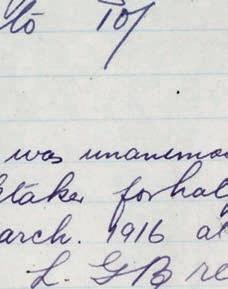 to 10/
was unanimo
ktaker for hal
arch. 1916 at
L. G Bre